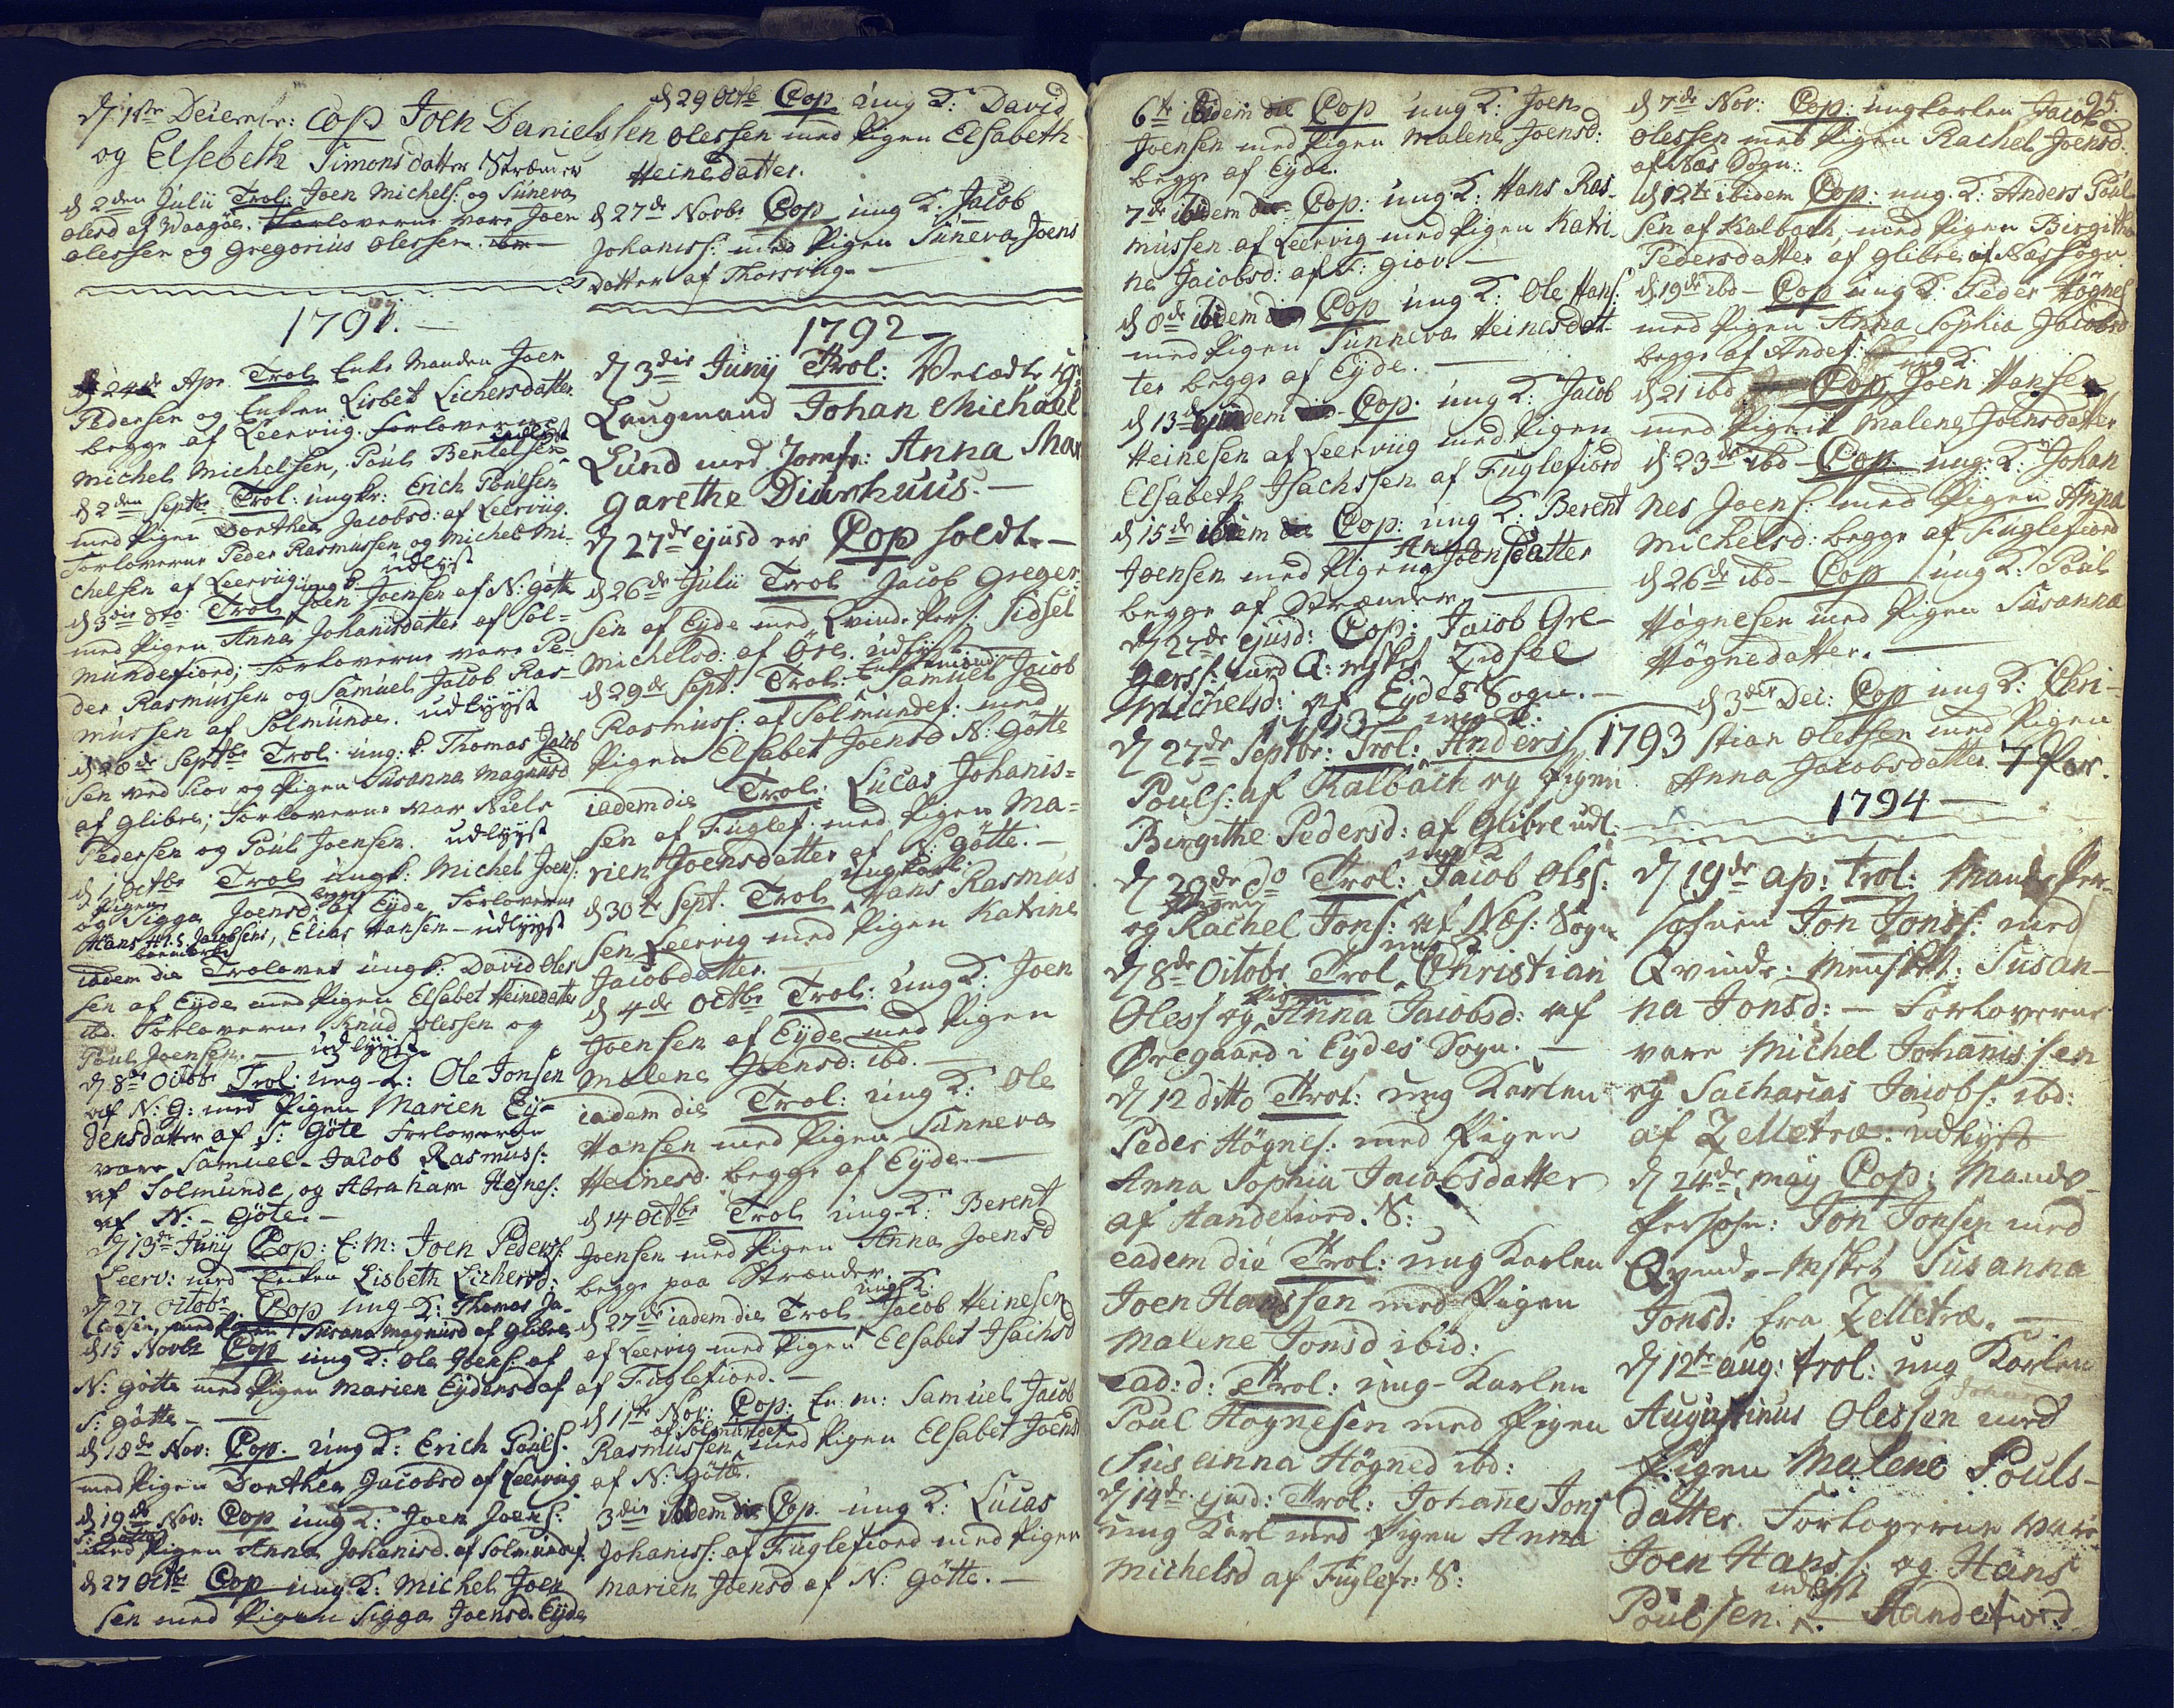 d 1ste Deiembr: Cop Joen Danielssen
og Elsebeth Simonsdatter Strænder
d 2den Julii Trol: Joen Michels: og Süneva
Olesd af Waagöe. Forloverne vare Joen
Olessen og Gregorius Olessen.
1791.
24de Apr. Trol Enke Manden Joen
Pedersen og Enken Lisbet Lichersdatter
begge af Leerviig. Forloverne
Michel Michelsen, Poul Bertelsen udlyst
d 2den Septbr Trol: ungkr: Erich Poulsen
med Pigen Dorthea Jacobsd: af Leerviig.
Forloverne Peder Rasmussen og Michel Mi-
chelsen af Leerviig udlyst
d 3die dto Trol ungk Joen Joensen af N: Götte
med Pigen Anna Johanisdatter af Sol=
mundefiord; Forloverne vare Pe-
der Rasmussen og Samuel Jacob Ras-
mussen af Solmunde. udlyyst
d 26de Septbr Trol ung: k. Thomas Jacob
sen ved Siov og Pigen Susanna Magnusd
af Glibre; Forloverne var Niels
Pedersen og Poul Joensen. udlyyst
d 1 Octbr Trol ungk: Michel Joens:
og Pigen Sigga Joensd: begge af Eyde Forloverne
Hans H: S. Jacobsens, Elias Hansen - udlyyst
boemerke
iadem die Trolovet ungk: David Oles
sen af Eyde med Pigen Elsabet Heinedatter
ibd. Forloverne Knud Olessen og
Poul Joensen. - udlyyst
d 8de Octobr Trol: ung-K: Ole Jonsen
af N: G: med Pigen Marien Ey-
densdatter af S: Göte Forloverne
vare Samuel-Jacob Rasmuss:
af Solmunde, og Abraham Hejnes:
af N:- Göte.-
d 13de Juny Cop: E: M: Joen Peders:
Leerv: med Enken Lisbeth Lichersd:
d 27 Octobr. Cop ung-K: Thomas Ja-
cobsen, med Pigen Susana Magnusd af Glibre
d 15 Novbr Cop ung K: Ole Joens: af
N: Götte med Pigen Marien Eydensd af
S: Götte -
d 18de Nov: Cop. ung K: Erich Pouls:
med Pigen Dorthea Jacobsd af Leerviig
d 19de Nov: Cop ung K: Joen Joens:
S: Götte med Pigen Anna Johanisd. af Solmundef:
d 27 Octbr Cop ung K: Michel Joen
sen med Pigen Sigga Joensd. Eyde
d 29 Octb Cop ung K: David
Olessen med Pigen Elsabeth
Heinedatter.
d 27de Novbr Cop ung K: Jacob
Johaniss: med Pigen Süneva Joens
datter af Thorsviig.-
1792
d 3die Juny Trol: Velædle Hr
Laugmand Johan Michael
Lund med Jomfr: Anna Mar
garethe Diurhuus.-
d 27de ejusd er Cop holdt.-
d 26de Julii Trol Jacob Greger
sen af Eyde med Qvinde Pers: Sidsel
Michelsd: af Öre. udlyst
d 29de Sept: Trol: Enkemand Samuel Jacob
Rasmuss: af Solmundef: med
Pigen Elsabet Joensd N: Götte
iadem die Trol: Lucas Johanis=
sen af Fuglef: med Pigen Ma=
rien Joensdatter af N: Götte.-
d 30te Sept. Trol ungkarl Hans Rasmus
sen Leervig med Pigen Katrine
Jacobsdatter.
d 4de Octbr Trol: ung K: Joen
Joensen af Eyde med Pigen
Malene Joensd: ibd.-
iadem die Trol: ung K: Ole
Hansen med Pigen Sunneva
Heinesd. begge af Eyde.-
d 14 Octbr Trol ung-K: Berent
Joensen med Pigen Anna Joensd
begge paa Strænder.
d 27de iadem die Trol ung K: Jacob Heinesen
af Leervig med Pigen Elsabet Isachsd
af Fuglefiord.-
d 1ste Nov: Cop: En: m: Samuel Jacob
Rasmussen af Solmundef: med Pigen Elsabet Joensd
af N: Götte.
3die ibidem Cop. ung K: Lucas
Johaniss: af Fuglefiord med Pigen
Marien Joensd af N: Götte.-
6te ibidem Cop ung K: Joen
Joensen med Pigen Malene Joensd:
begge af Eyde.
7de ibidem Cop: ung K: Hans Ras-
mussen af Leervig med Pigen Katri-
ne Jacobsd: af S: Giov.-
d 8de ibidem Cop ung K: Ole Hans:
med Pigen Sunneva Heinesdat-
ter begge af Eyde.-
d 13de ibidem Cop: ung K: Jacob
Heinesen af Leerviig med Pigen
Elsabeth Isachssen af Fuglefiord
d 15de ibidem Cop: ung K: Berent
Joensen med Pigen Anna Joensdatter
begge af Strænder,
d 27de ejusd: Cop: Jacob Gre-
gers: med Q: msket Zidsel
Michelsd: af Eydes Sogn.-
1793
d 27de Septbr: Trol: ung K: Anders
Pouls: af Kalbach og Pigen
Birgithe Pedersd: af Glibre udl:
d 29de do Trol: ung K Jacob Oles:
og Pigen Rachel Jons: af Næs: Sogn
d 8de Octobr Trol ung K Christian
Oless og Pigen Anna Jacobsd: af
Øregaard i Eydes Sogn.-
d 12 ditto Trol: ung Karlen
Peder Högnes: med Pigen
Anna Sophia Jacobsdatter
af Handefiord. S:
eadem die Trol: ung Karlen
Joen Hanssen med Pigen
Malene Jonsd ibid:
ead: d: Trol: ung-Karlen
Poul Högnesen med Pigen
Susanna Högned ibd:
d 14de ejusd: Trol: Johanes Jons
ung Karl med Pigen Anna
Michelsd af Fuglefr: S:
25.
d 7de Nov: Cop: ungkarlen Jacob
Olessen med Pigen Rachel Joensd:
af Næs Sogn.
d 12te ibidem Cop: ung. K: Anders Poul-
sen af Kalbach med Pigen Birgithe
Pedersdatter af Glibre af Næs Sogn.
d 19de ibd- Cop ung K: Peder Högnes
med Pigen Anna Sophia Jacobsd
begge af Andef:
d 21 ibd Cop ung K Joen Hansen
med Pigen Malene Joensdatter
d 23de ibd- Cop ung: K: Johan
nes Joens: med Pigen Anna
Michelsd: begge af Fuglefiord
d 26de ibd- Cop ung K: Poul
Högnesen med Pigen Susanna
Högnedatter.-
1793
d 3die Dec: Cop ung K: Chri-
stian Olessen med Pigen
Anna Jacobsdatter. 7 Par.
1794
d 19de ap: Trol: Mands Per-
sohnen Jon Jons: med
Qvinde-Mensket: Susan-
na Jonsd:- Forloverne
vare Michel Johanissen
og Sacharias Jacobs: ibd:
af Zelletræ. udlyst
d 24de may Cop: Mands-
Persohn: Jon Jonsen med
Qvinde-Msket Susanna
Jonsd: fra Zelletræ.-
d 12te aug: Trol: ung Karlen
Augustinus Olessen med
Pigen Malene Pouls-
datter. Forloverne vare
Joen Hanss: og Hans
Poulsen. udlyst - Handefiord